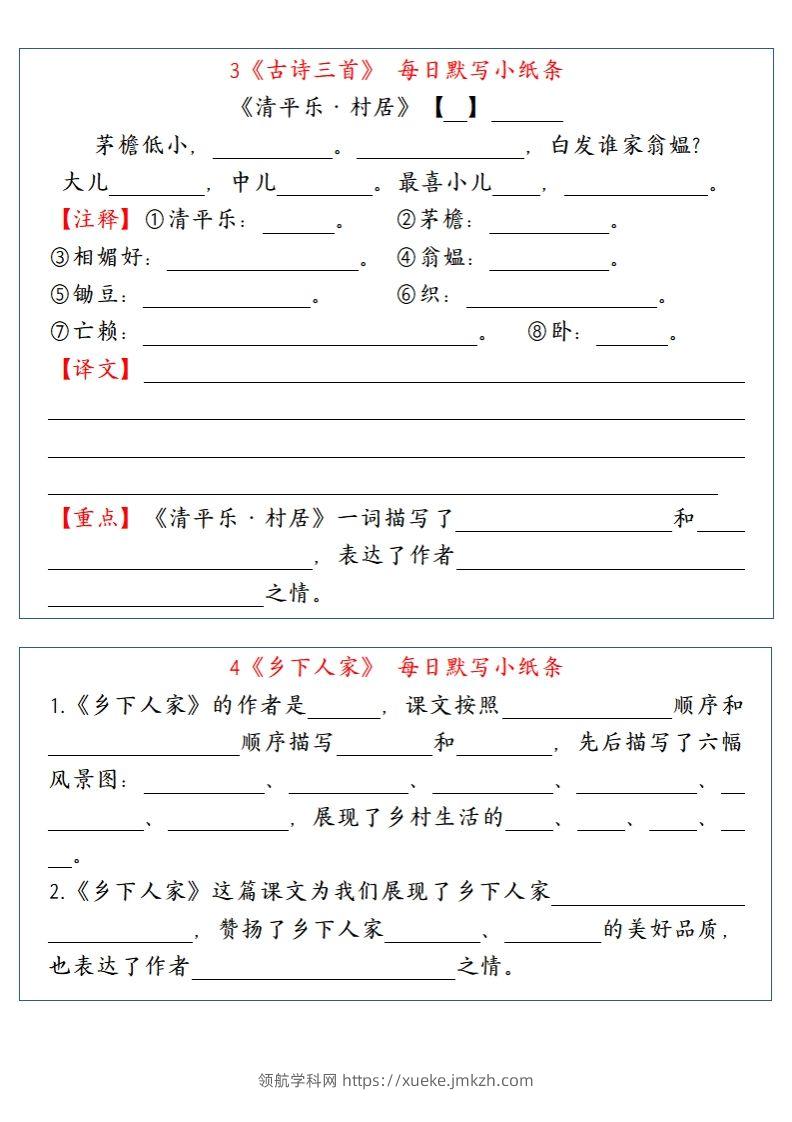 3《古诗三首》 每日默写小纸条
《清平乐·村居》【__】______
茅檐低小，__________。______________，白发谁家翁媪?
大儿________，中儿________。最喜小儿____，____________。
【注释】①清平乐：______。 ②茅檐：__________。
③相媚好：________________。 ④翁媪：__________。
⑤锄豆：______________。 ⑥织：________________。
⑦亡赖：____________________________。 ⑧卧：______。
【译文】__________________________________________________
__________________________________________________________
__________________________________________________________
________________________________________________________
【重点】《清平乐·村居》一词描写了__________________和____
______________________，表达了作者________________________
__________________之情。
4《乡下人家》 每日默写小纸条
1.《乡下人家》的作者是______，课文按照______________顺序和
________________顺序描写________和________，先后描写了六幅
风景图：__________、__________、__________、__________、__
________、__________，展现了乡村生活的____、____、____、__
__。
2.《乡下人家》这篇课文为我们展现了乡下人家________________
____________，赞扬了乡下人家________、________的美好品质，
也表达了作者______________________之情。
领航学科网 https://xueke.jmkzh.com